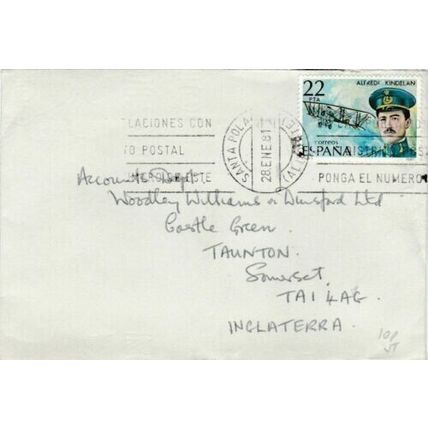 22
PTA
ALFREDO KINDELAN
correos
ESPAÑA
LACIONES CON
O POSTAL
SANTA POLA
28 ENE 81
PONGA EL NUMERO
Accounts Dept
Woodley Williams & Dunsford Ltd
Castle Green
TAUNTON
Somerset.
TA1 4AG.
INGLATERRA.